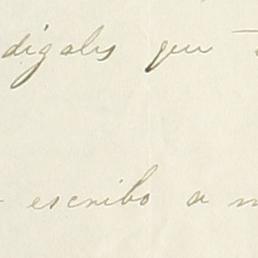 digales que
escribo a